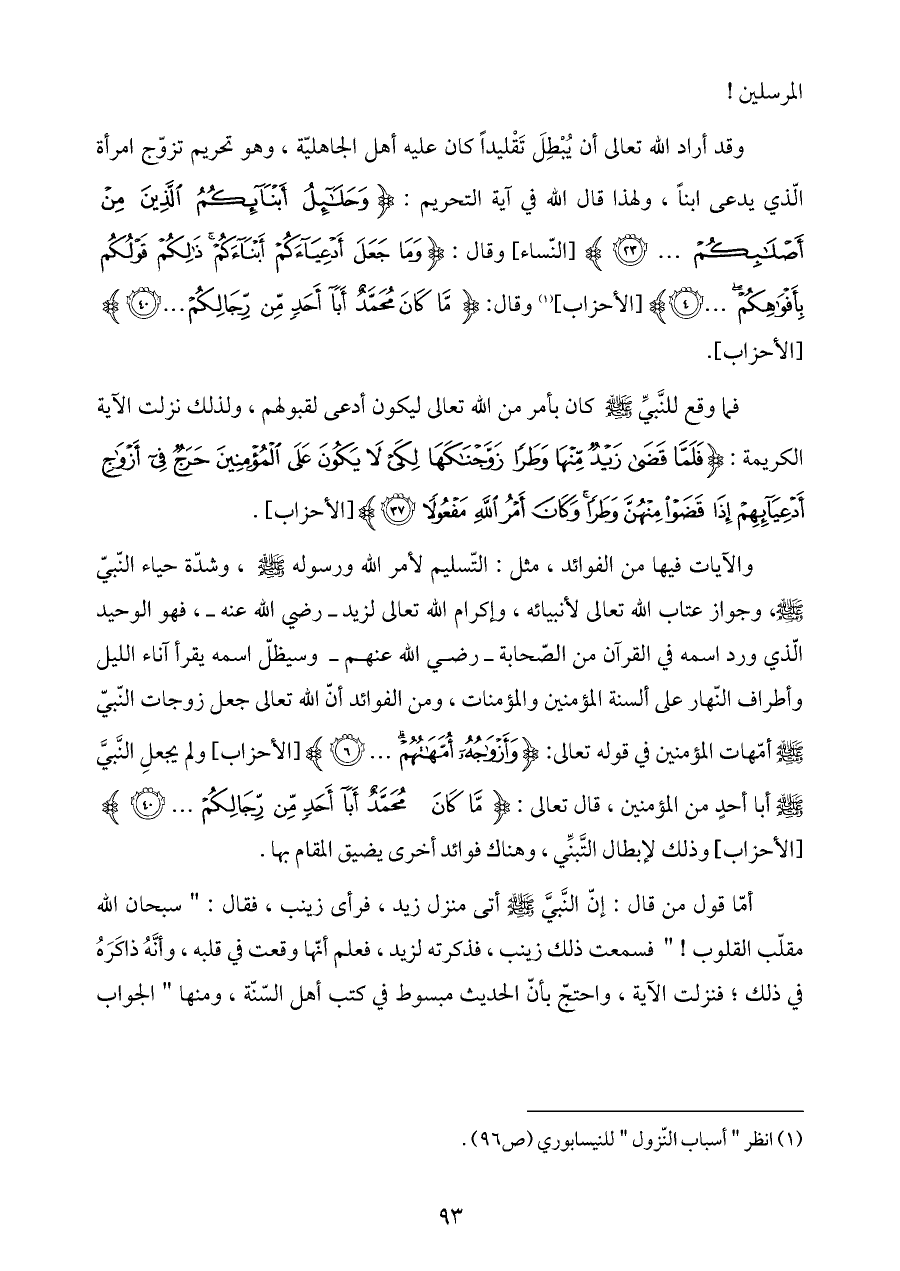 المرسلين !
وقد أراد الله تعالى أن يُبْطِلَ تَقْليداً كان عليه أهل الجاهليّة ، وهو تحريم تزوّج امرأة
الّذي يدعى ابناً ، ولهذا قال الله في آية التحريم : ﴿ وَحَلَـٰٓئِلُ أَبْنَآئِكُمُ ٱلَّذِينَ مِنْ
أَصْلَـٰبِكُمْ ... ٢٣ ﴾ [النّساء] وقال : ﴿ وَمَا جَعَلَ أَدْعِيَآءَكُمْ أَبْنَآءَكُمْ ۚ ذَٰلِكُمْ قَوْلُكُم
بِأَفْوَٰهِكُمْ ۖ ... ٤ ﴾ [الأحزاب](١) وقال: ﴿ مَّا كَانَ مُحَمَّدٌ أَبَآ أَحَدٍ مِّن رِّجَالِكُمْ... ٤٠ ﴾
[الأحزاب].
فما وقع للنَّبيِّ ﷺ كان بأمر من الله تعالى ليكون أدعى لقبولهم ، ولذلك نزلت الآية
الكريمة : ﴿ فَلَمَّا قَضَىٰ زَيْدٌ مِّنْهَا وَطَرًا زَوَّجْنَـٰكَهَا لِكَىْ لَا يَكُونَ عَلَى ٱلْمُؤْمِنِينَ حَرَجٌ فِىٓ أَزْوَٰجِ
أَدْعِيَآئِهِمْ إِذَا قَضَوْا۟ مِنْهُنَّ وَطَرًا ۚ وَكَانَ أَمْرُ ٱللَّهِ مَفْعُولًا ٣٧ ﴾ [الأحزاب] .
والآيات فيها من الفوائد ، مثل : التّسليم لأمر الله ورسوله ﷺ ، وشدّة حياء النّبيّ
ﷺ، وجواز عتاب الله تعالى لأنبيائه ، وإكرام الله تعالى لزيد ـ رضي الله عنه ـ ، فهو الوحيد
الّذي ورد اسمه في القرآن من الصّحابة ـ رضـي الله عنهـم ـ وسيظلّ اسمه يقرأ آناء الليل
وأطراف النّهار على ألسنة المؤمنين والمؤمنات ، ومن الفوائد أنّ الله تعالى جعل زوجات النّبيّ
ﷺ أمّهات المؤمنين في قوله تعالى: ﴿ وَأَزْوَٰجُهُۥٓ أُمَّهَـٰتُهُمْ ۗ ... ٦ ﴾ [الأحزاب] ولم يجعلِ النَّبيَّ
ﷺ أبا أحدٍ من المؤمنين ، قال تعالى : ﴿ مَّا كَانَ مُحَمَّدٌ أَبَآ أَحَدٍ مِّن رِّجَالِكُمْ ... ٤٠ ﴾
[الأحزاب] وذلك لإبطال التَّبنِّي ، وهناك فوائد أخرى يضيق المقام بها .
أمّا قول من قال : إنّ النَّبيَّ ﷺ أتى منزل زيد ، فرأى زينب ، فقال : " سبحان الله
مقلّب القلوب ! " فسمعت ذلك زينب ، فذكرته لزيد ، فعلم أنّها وقعت في قلبه ، وأنَّهُ ذاكَرَهُ
في ذلك ؛ فنزلت الآية ، واحتجّ بأنّ الحديث مبسوط في كتب أهل السّنّة ، ومنها " الجواب
(١) انظر " أسباب النّزول " للنيسابوري (ص٩٦) .
٩٣